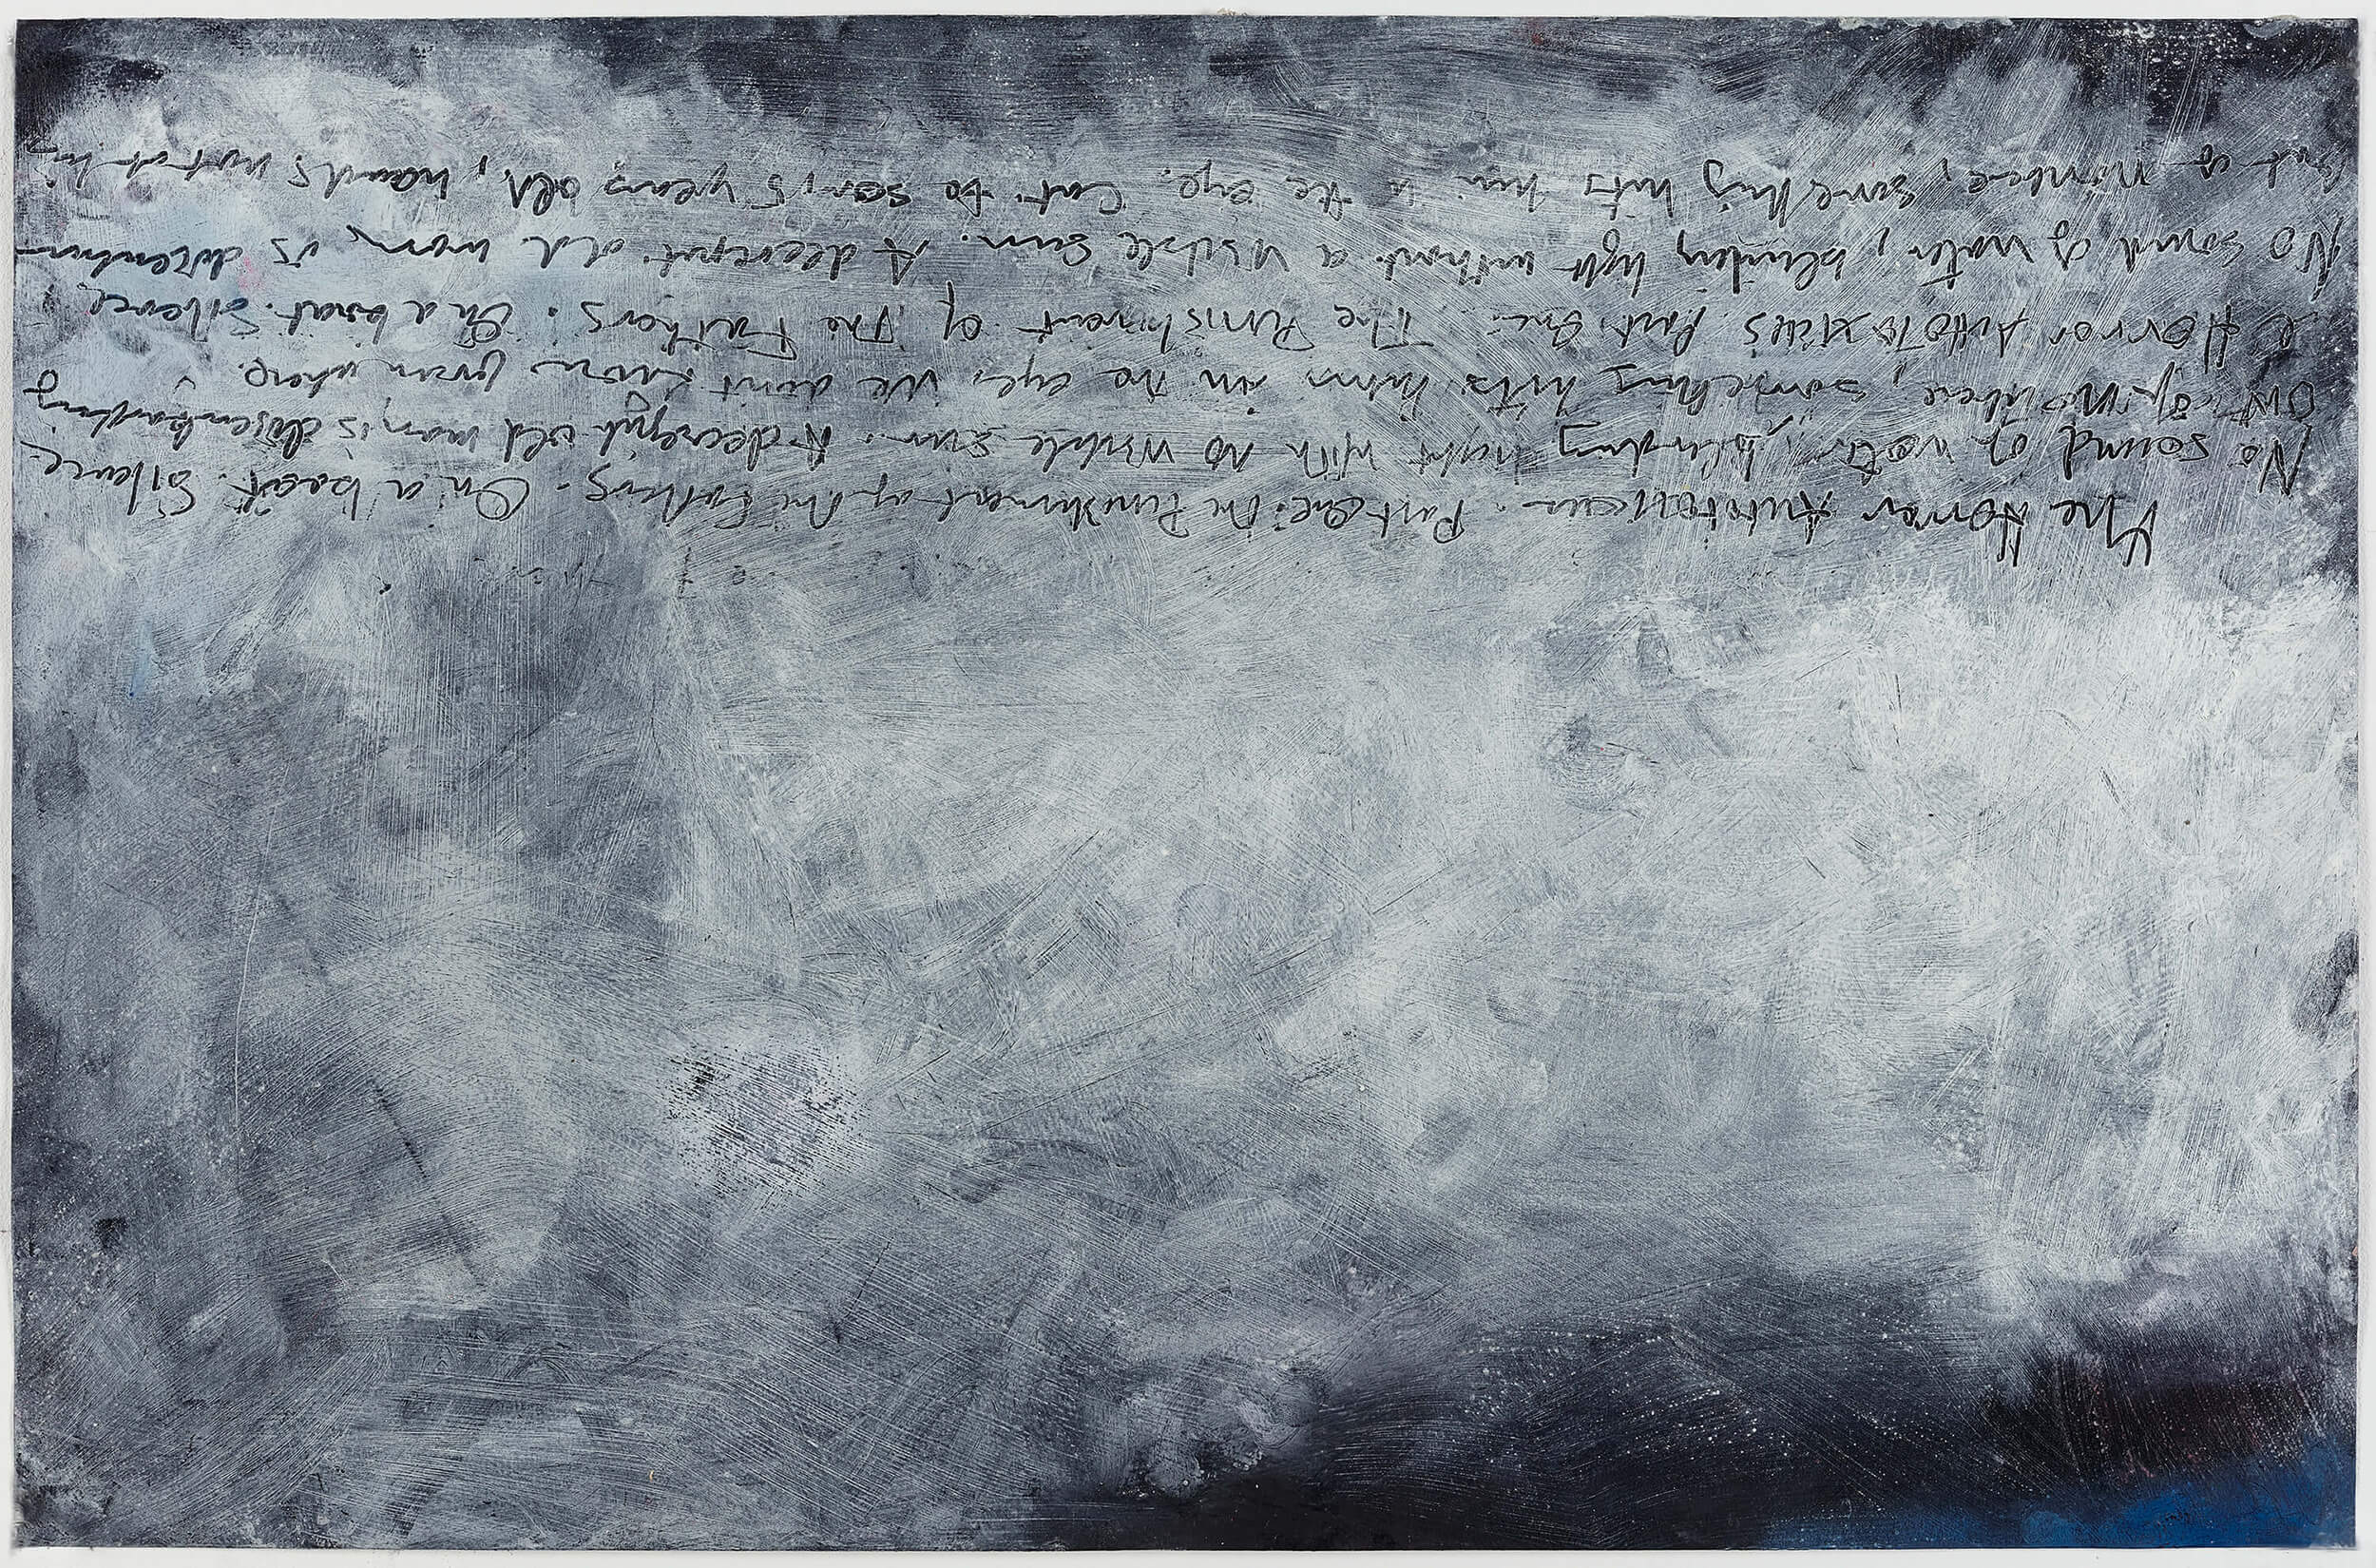 The Horror Autotoxicus. Part One: The Punishment of the Fathers. On a boat. Silence.
No sound of water, blinding light with no visible sun. A decrepit old man is disembarking
Out of nowhere, something hits him in the eye. We don't know from where.
e Horror Autotoxicus. Part One: The Punishment of The Fathers. On a boat. Silence.
No sound of water, blinding light without a visible sun. A decrepit old man is
out of nowhere, something hits him in the eye. Cut to son, 5 years old, hands